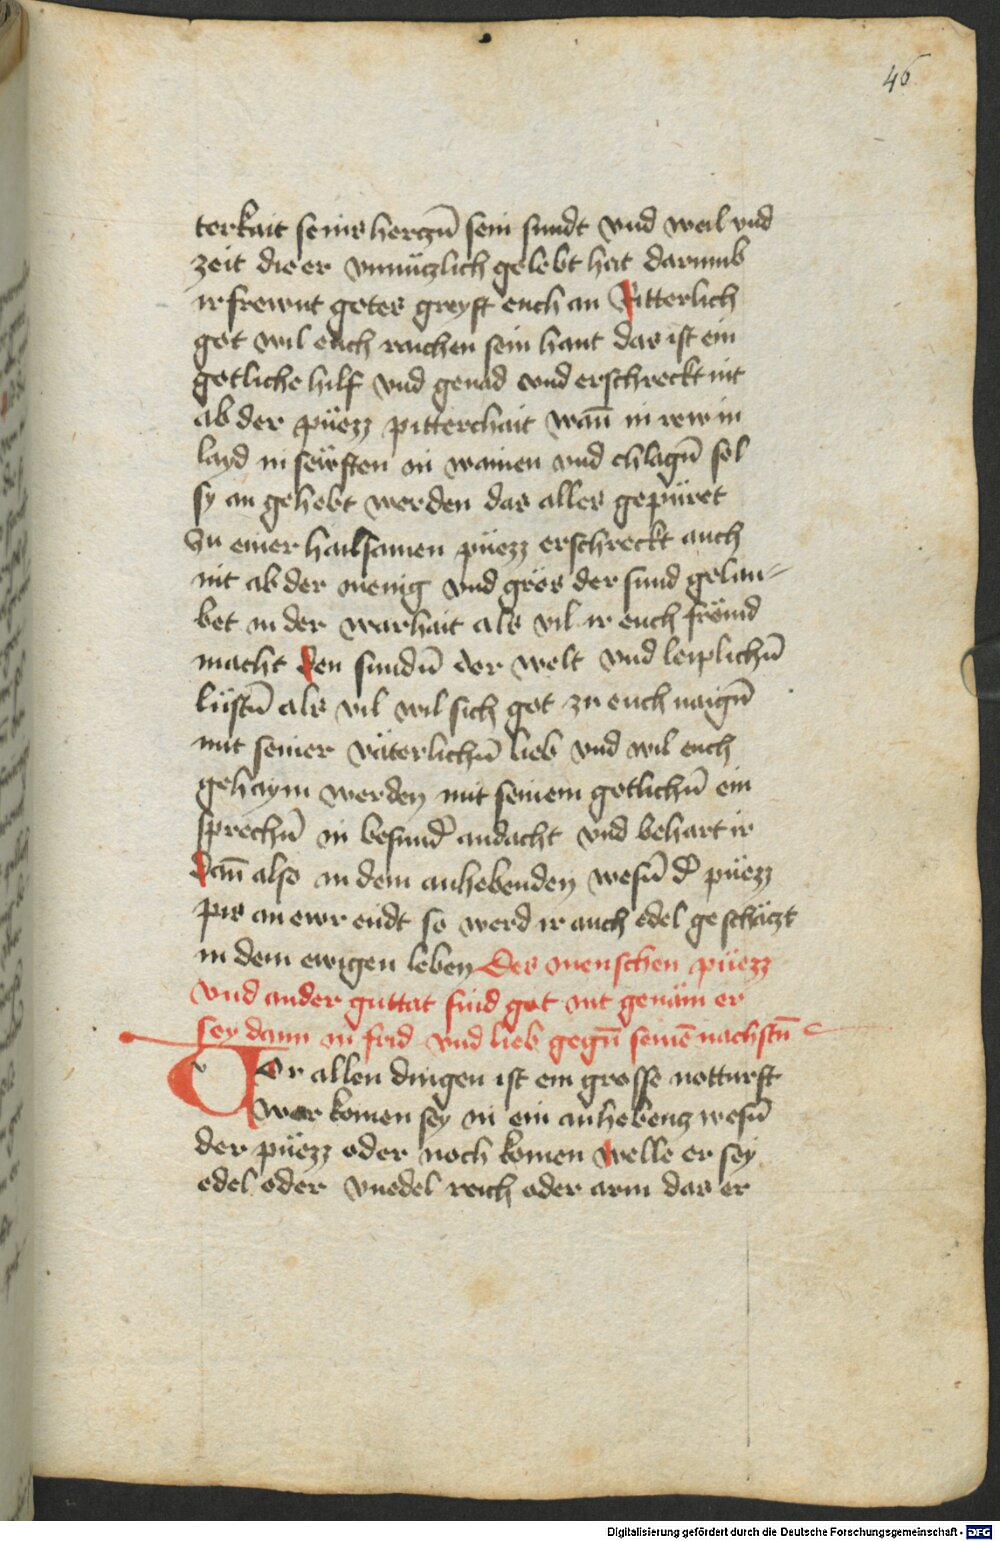 46
terkait seins herczn̄ sein sundt vnd weil vnd
zeit die er vnnüczlich gelebt hat darumb
ir frewnt gotes greyft euch an Ritterlich
got wil euch raichen sein hant das ist ein
gotliche hilf vnd genad vnd erschreckt nit
ab der püezz pitterchait wan̄ in rew in
layd in sewften in wainen vnd chlagn̄ sol
sy an gehebt werden das alles gepüret
zu einer hailsamen püezz erschreckt auch
nit ab der menig vnd grös der sund gelau-
bet in der warhait als vil ir euch frömd
macht den sundn̄ der welt vnd leiplichn̄
lüstn̄ als vil wil sich got zu euch naign̄
mit seiner väterlichn̄ lieb vnd wil euch
gehaym werden mit seinem gotlichn̄ ein
sprechn̄ in besund̄ andacht vnd behart ir
dan̄ also in dem anhebenden wesn̄ d̄ püezz
pis an ewr endt so werd ir auch edel geschäczt
in dem ewigen leben Des menschen püezz
vnd ander guttat sind got nit genäm er
sey dann in frid vnd lieb gegn̄ seinē nachstn̄
Vor allen dingen ist ein grosse notturft
wer komen sey in ein anhebencz wesn̄
der püezz oder noch komen welle er sey
edel oder vnedel reich oder arm das er
Digitalisierung gefördert durch die Deutsche Forschungsgemeinschaft - DFG